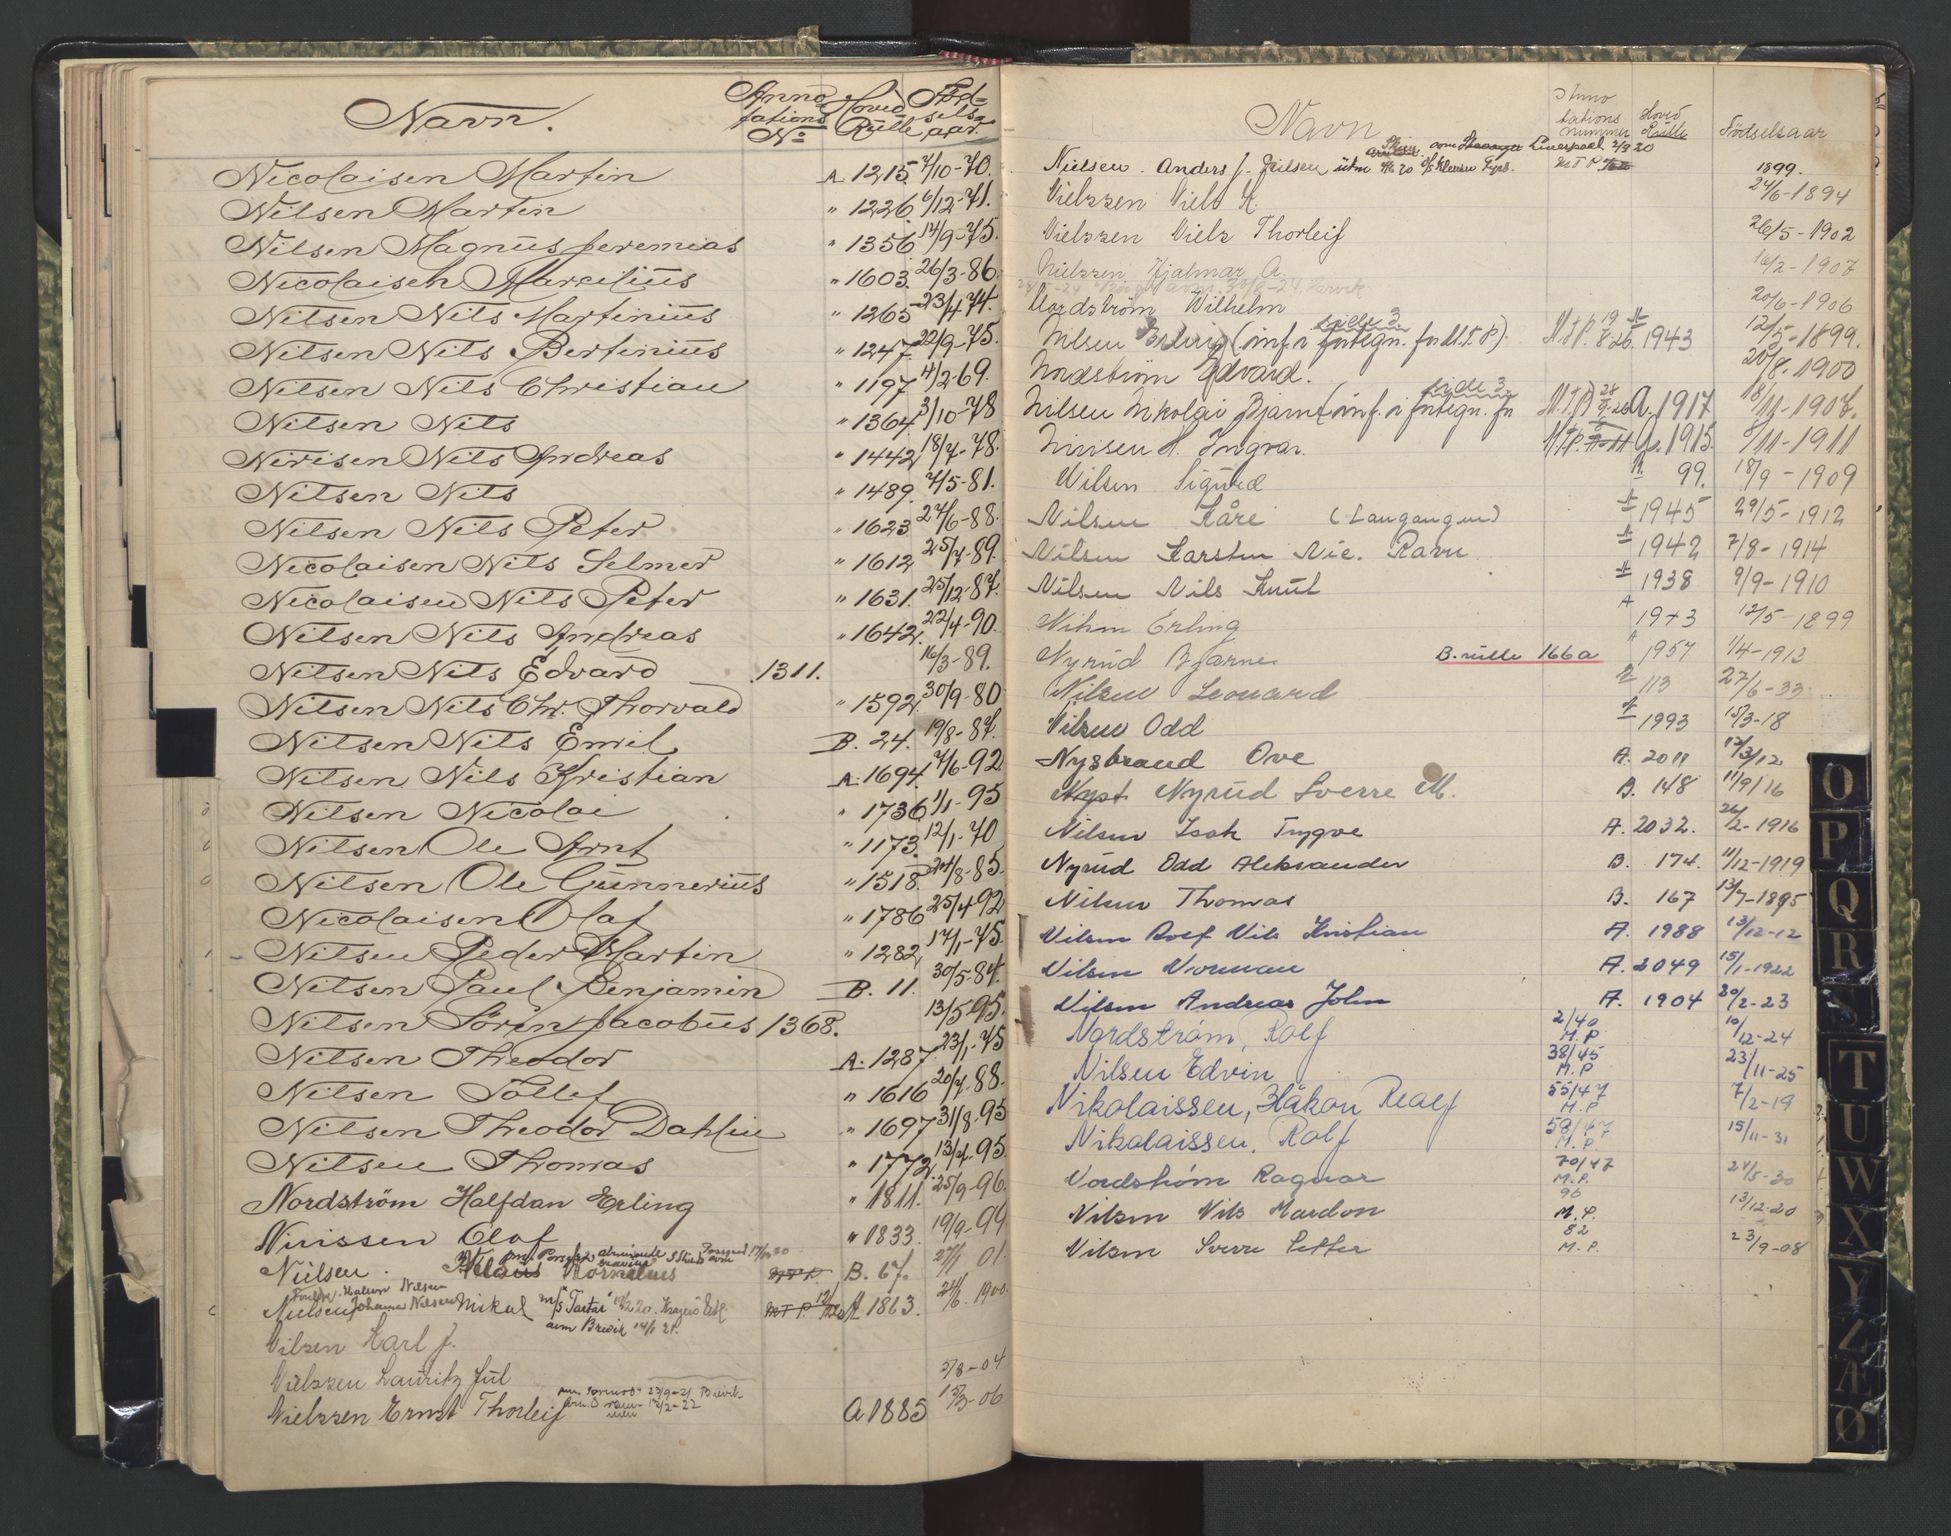 Navn. Annotations No Hoved Rulle Fødselsaar.
Nicolaisen Martin A. 1215. 7/10-70.
Nilsen Martin " 1226. 4/12-71.
Nilsen Magnus Jeremias " 1356 14/9-75.
Nicolaisen Marcelius " 1603. 26/3-86.
Nilsen Nils Martinius " 1265 23/4-74.
Nilsen Nils Bertinius " 1247. 22/9-75.
Nilsen Nils Christian " 1197 4/2-69.
Nilsen Nils " 1364 3/10-78
Nirisen Nils Andreas " 1442 18/7-78.
Nilsen Nils " 1489. 7/5-81.
Nilsen Nils Peter " 1623 27/6-88.
Nicolaisen Nils Selmer " 1612 25/7-89.
Nicolaisen Nils Peter " 1631. 25/12-87.
Nilsen Nils Andreas " 1642. 22/4-90.
Nilsen Nils Edvard 1311. 16/3-89.
Nilsen Nils Chr. Thorvald " 1592. 30/9-80
Nilsen Nils Emil B. 24. 19/8-87.
Nilsen Nils Kristian A. 1694. 7/6-92
Nilsen Nicolai " 1736 1/1-95
Nilsen Ole Arnt " 1173. 12/1-70
Nilsen Ole Gunnerius " 1518. 24/8-85.
Nicolaisen Olaf " 1786 25/4-92
Nilsen Peder Martin " 1282. 17/1-75.
Nilsen Paul Benjamin B. 11. 30/5-84.
Nilsen Sören Jacobus 1368. 13/5-95.
Nilsen Theodor A. 1287. 23/1-75
Nilsen Tollef " 1616 20/7-88.
Nilsen Theodor Dahlin " 1697 31/8-95
Nilsen Thomas " 1772. 13/7-95.
Nordström Halfdan Erling " 1811. 25/9-96.
Nirissen Olaf " 1833. 19/9-99.
Nielsen. Klaus Kornelius B. 67. 27/1 01.
Nielsen Johannes Nilsen Mikal m/s "Tartar" Kragerø A 1863. 24/6 1900.
avm Brevik 14/1 21.
Nilsen Karl J.
Nielssen Lauritz Jul 3/8-04
Nielssen Ernst Thorleif A 1885 13/3-06
Navn Annotations nummer Hoved Rulle Fødselsaar
Liverpool 2/9 20
Nielsen. Anders J. Nilsen 1899.
Nielssen Niels K. 24/6-1894
Nielssen Niels Thorleif 26/5-1902
Nielssen Hjalmar A. 16/2-1907
Nordström Wilhelm 20/6-1906
side 3
Nilsen (inf. i fortegn. for M.T.P.) M.T.P. 19/8-26. A 1943 12/5-1899.
Nordström Edvard. 20/8-1900
side 3
Nilsen Nikolai Bjarne (inf. i fortegn. for M.T.P.) 28/9-26 A. 1917 18/11-1907.
Nirisen H. Ingvar. M.T.P. A. 1915. 9/11-1911
Nilsen Sigurd 99. 18/9-1909
Nilsen Kåre (Langangen) A 1945 29/5-1912
Nilsen Karsten Nic. Ravn A 1942 7/8-1914
Nilsen Nils Knut A 1938 9/9-1910
Erling A 1943 12/5-1899
Nyrud Bjarne B. rulle 166a A 1957 1/4-1913
Nilsen Leonard B 113 27/6-33
Nilsen Odd A 1993 15/3-18
Nysbraud Ove A. 2011 12/3/12
Nyst Nyrud Sverre M. B. 148 11/9/16
Nilsen Isak Trygve A. 2032. 26/2-1916
Nyrud Odd Aleksander B. 174. 11/12-1919
Nilsen Thomas B. 167 13/7-1895
Nilsen Rolf Nils Kristian A. 1988 13/12-12
Nilsen Norman A. 2049 15/1-1922
Nilsen Andreas John A. 1904 20/2-23
Nordström, Rolf 2/40 M.P 10/12-24
Nilsen Edvin 38/45 M.P 23/11-25
Nikolaissen, Håkon Realf 55/47 M.P 7/2-19
Nikolaissen, Rolf 58/47 M.P 15/11-31
Nordstrøm Ragnar 70/47 M.P. 24/5-30
Nilsen Nils Mardon 96 M.P. 13/12-20
Nilsen Sverre Petter 82 M.P. 23/9-08
O
P
Q
R
S
T
U
W
X
Y
Z
Æ
Ø